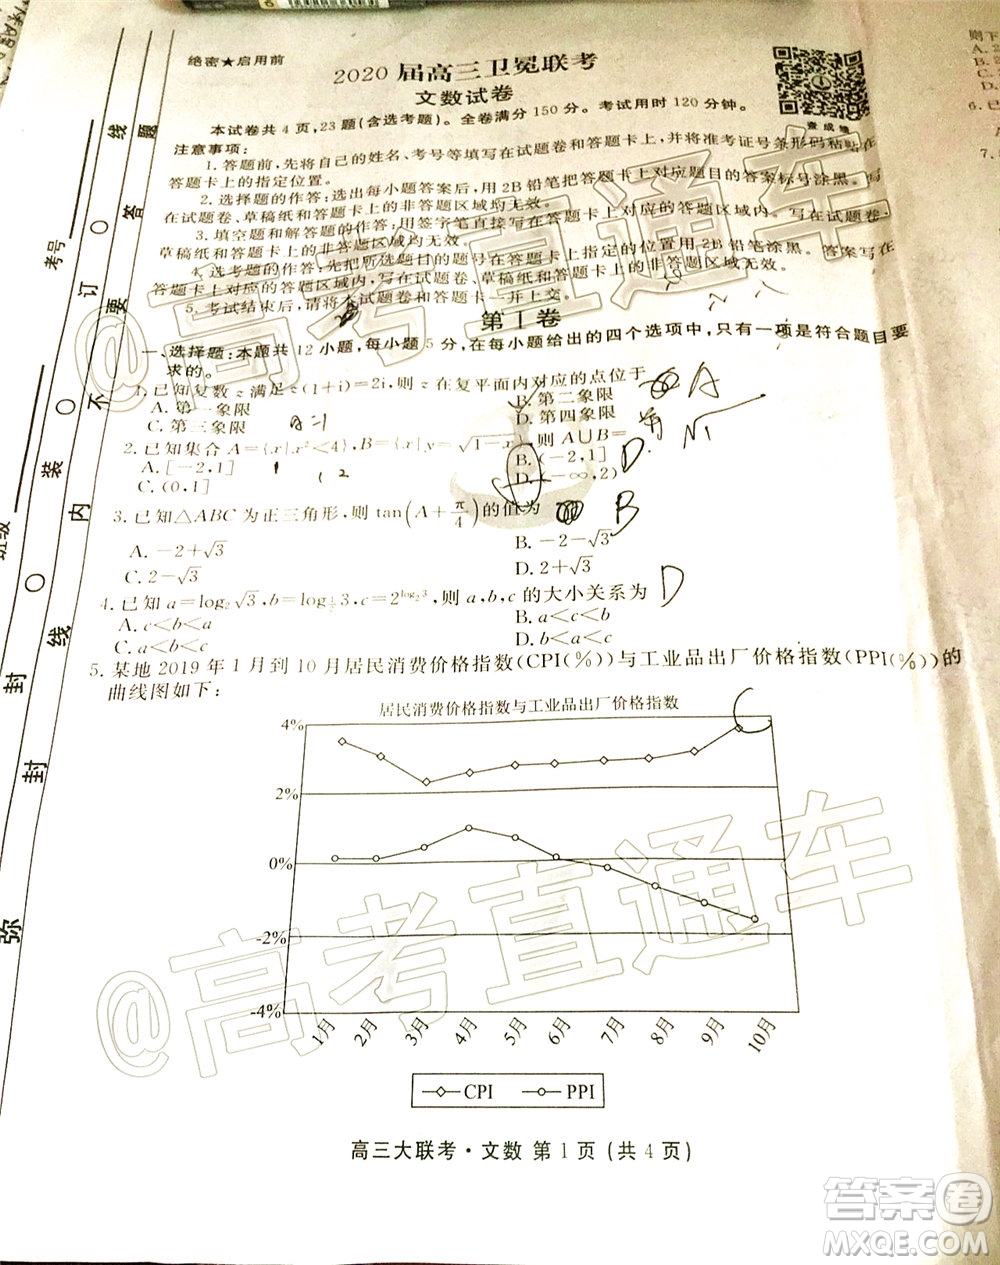 绝密★启用前
2020届高三卫冕联考
文数试卷
本试卷共4页,23题(含选考题)。全卷满分150分。考试用时120分钟。
注意事项:
1. 答题前,先将自己的姓名、考号等填写在试题卷和答题卡上,并将准考证号条形码粘贴在
答题卡上的指定位置。
2. 选择题的作答:选出每小题答案后,用2B铅笔把答题卡上对应题目的答案标号涂黑。写
在试题卷、草稿纸和答题卡上的非答题区域均无效。
3. 填空题和解答题的作答:用签字笔直接写在答题卡上对应的答题区域内。写在试题卷、
草稿纸和答题卡上的非答题区域均无效。
4. 选考题的作答:先把所选题目的题号在答题卡上指定的位置用2B铅笔涂黑。答案写在
答题卡上对应的答题区域内,写在试题卷、草稿纸和答题卡上的非答题区域无效。
5. 考试结束后,请将本试题卷和答题卡一并上交。
第Ⅰ卷
一、选择题:本题共12小题,每小题5分,在每小题给出的四个选项中,只有一项是符合题目要
求的。
1. 已知复数z满足z(1+i)=2i,则z在复平面内对应的点位于 A
A. 第一象限 B. 第二象限
C. 第三象限 D. 第四象限
2. 已知集合A={x|x²<4},B={x|y=√(1-x)},则A∪B= D
A. [-2,1] B. (-2,1]
C. (0,1] D. (-∞,2)
3. 已知△ABC为正三角形,则tan(A+π/4)的值为 B
A. -2+√3 B. -2-√3
C. 2-√3 D. 2+√3
4. 已知a=log₂√3,b=log_{1/2}3,c=2^{log₂3},则a,b,c的大小关系为 D
A. c<b<a B. a<c<b
C. a<b<c D. b<a<c
5. 某地2019年1月到10月居民消费价格指数(CPI(%))与工业品出厂价格指数(PPI(%))的
曲线图如下:
C
居民消费价格指数与工业品出厂价格指数
4%
2%
0%
-2%
-4%
1月 2月 3月 4月 5月 6月 7月 8月 9月 10月
CPI PPI
高三大联考·文数 第1页(共4页)
考号
班级
弥 封 线 内 不 要 答 题
封 装 订 线
@高考直通车
答案卷
MXQE.COM